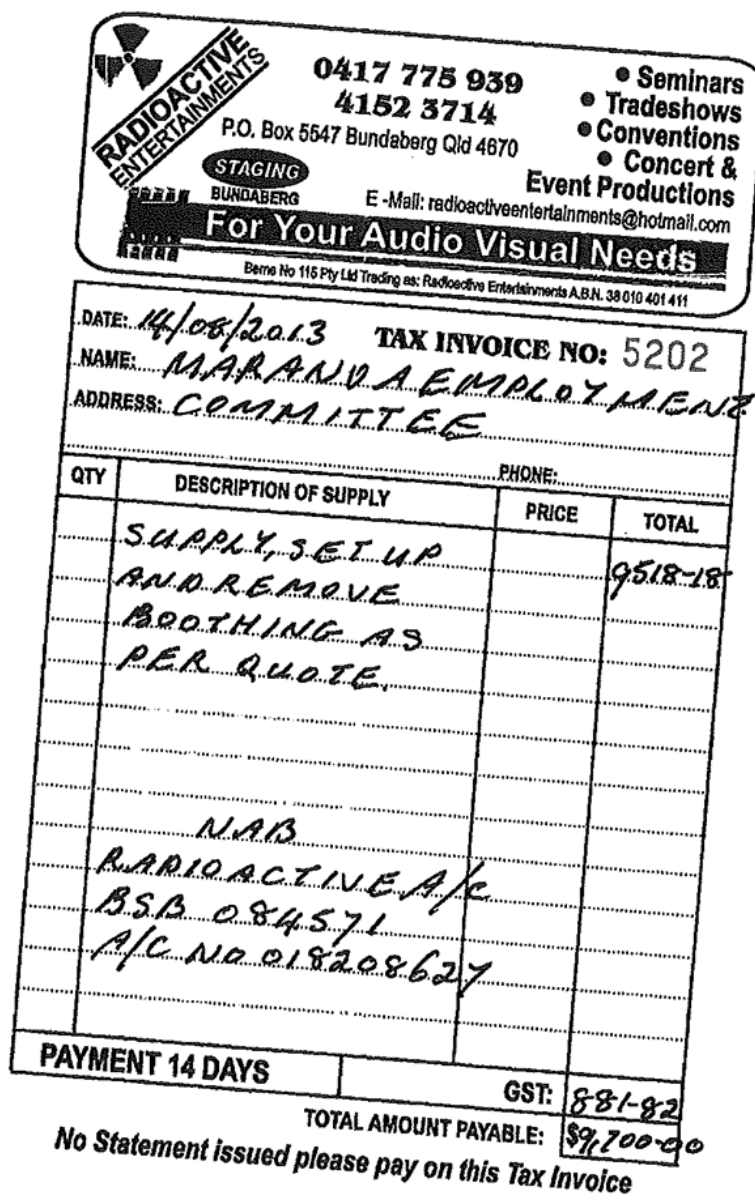 RADIOACTIVE
ENTERTAINMENTS
0417 775 939
4152 3714
P.O. Box 5547 Bundaberg Qld 4670
STAGING
BUNDABERG
E -Mail: radioactiveentertainments@hotmail.com
• Seminars
• Tradeshows
• Conventions
• Concert &
Event Productions
For Your Audio Visual Needs
Berns No 115 Pty Ltd Trading as: Radioactive Entertainments A.B.N. 38 010 401 411
DATE: 14/08/2013 TAX INVOICE NO: 5202
NAME: MARANDA EMPLOYMENT
ADDRESS: COMMITTEE
PHONE:
QTY DESCRIPTION OF SUPPLY PRICE TOTAL
SUPPLY, SET UP 9518-18
AND REMOVE
BOOTHING AS
PER QUOTE.
NAB
RADIOACTIVE A/C
BSB 084571
A/C NO 018208627
PAYMENT 14 DAYS GST: 881-82
TOTAL AMOUNT PAYABLE: $9,700-00
No Statement issued please pay on this Tax Invoice